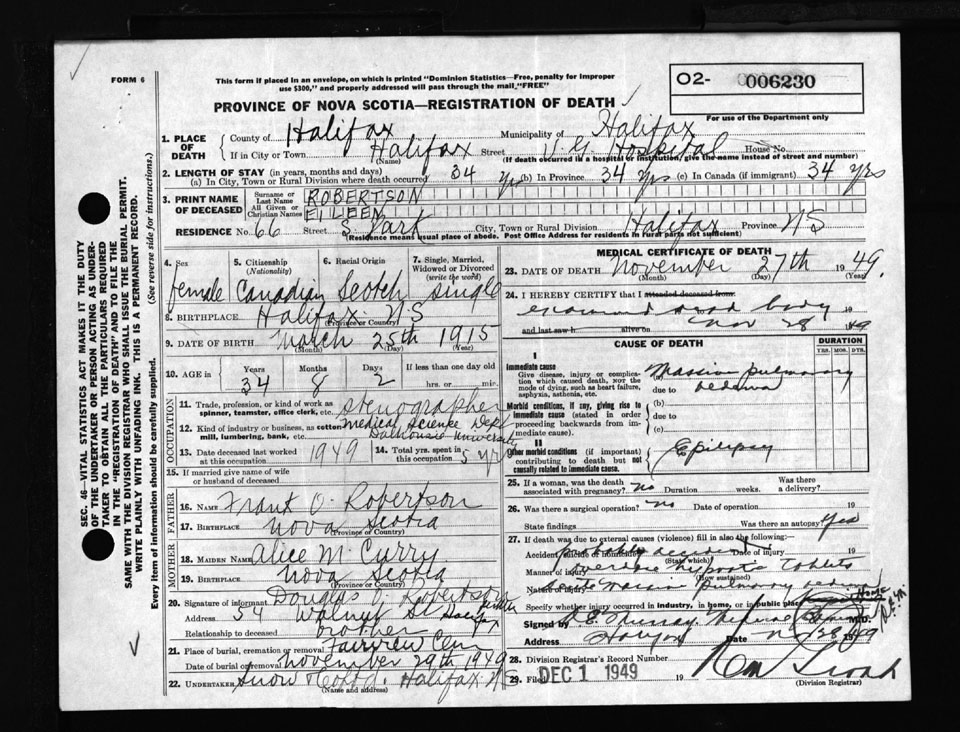 FORM 6
This form if placed in an envelope, on which is printed "Dominion Statistics—Free, penalty for improper
use $300," and properly addressed will pass through the mail "FREE"
O2- 006230
For use of the Department only
PROVINCE OF NOVA SCOTIA—REGISTRATION OF DEATH
1. PLACE OF DEATH
County of Halifax Municipality of Halifax
If in City or Town Halifax Street V.G. Hospital House No.
(Name) (If death occurred in a hospital or institution, give the name instead of street and number)
2. LENGTH OF STAY (in years, months and days)
(a) In City, Town or Rural Division where death occurred 34 yrs (b) In Province 34 yrs (c) In Canada (if immigrant) 34 yrs
3. PRINT NAME OF DECEASED
Surname or Last Name ROBERTSON
All Given or Christian Names EILEEN
RESIDENCE No. 66 Street S. Park City, Town or Rural Division Halifax Province NS
Residence means usual place of abode. Post Office Address for residents in rural parts not sufficient)
4. Sex female
5. Citizenship (Nationality) Canadian
6. Racial Origin Scotch
7. Single, Married, Widowed or Divorced (write the word) single
8. BIRTHPLACE Halifax NS
(Province or Country)
9. DATE OF BIRTH March 25th 1915
(Month) (Day) (Year)
10. AGE in Years 34 Months 8 Days 2 If less than one day
hrs. or min.
OCCUPATION
11. Trade, profession, or kind of work as spinner, teamster, office clerk, etc. stenographer
12. Kind of industry or business, as cotton mill, lumbering, bank, etc. Medical Science Dept Dalhousie University
13. Date deceased last worked at this occupation 1949
14. Total yrs. spent in this occupation 5 yrs
15. If married give name of wife or husband of deceased
FATHER
16. Name Frank O. Robertson
17. BIRTHPLACE Nova Scotia
(Province or Country)
MOTHER
18. MAIDEN NAME Alice M. Curry
19. BIRTHPLACE Nova Scotia
(Province or Country)
20. Signature of informant Douglas O. Robertson
Address 54 Walnut St Halifax
Relationship to deceased brother
21. Place of burial, cremation or removal Fairview Cem
Date of burial or removal November 29th 1949
22. Undertaker Snow & Co Ltd. Halifax NS
(Name and address)
MEDICAL CERTIFICATE OF DEATH
23. DATE OF DEATH November 27th 1949
(Month) (Day)
24. I HEREBY CERTIFY that I attended deceased from
examined dead body 19
and last saw h alive on Nov 28 1949
CAUSE OF DEATH
DURATION
YRS. MOS. DYS.
I
Immediate cause
Give disease, injury or complication which caused death, not the mode of dying, such as heart failure, asphyxia, asthenia, etc.
(a) Massive pulmonary oedema
due to
Morbid conditions, if any, giving rise to immediate cause (stated in order proceeding backwards from immediate cause).
(b)
due to
(c)
II
Other morbid conditions (if important) contributing to death but not causally related to immediate cause.
Epilepsy
25. If a woman, was the death associated with pregnancy? No Duration weeks. Was there a delivery?
26. Was there a surgical operation? No Date of operation 19
State findings Was there an autopsy? Yes
27. If death was due to external causes (violence) fill in also the following:—
Accident, Probably accident Date of injury 19
(State which)
Manner of injury overdose hypnotic tablets
(How sustained)
Nature of injury acute massive pulmonary oedema
Specify whether injury occurred in industry, in home, or in public place Home
Signed by Murray Medical M.D.
Address Halifax Date Nov 28 1949
28. Division Registrar's Record Number
29. Filed DEC 1 1949 19
(Division Registrar)
SEC. 46—VITAL STATISTICS ACT MAKES IT THE DUTY
OF THE UNDERTAKER OR PERSON ACTING AS UNDERTAKER
TO OBTAIN ALL THE PARTICULARS REQUIRED
IN THE "REGISTRATION OF DEATH" AND TO FILE THE
SAME WITH THE DIVISION REGISTRAR WHO SHALL ISSUE THE BURIAL PERMIT.
WRITE PLAINLY WITH UNFADING INK. THIS IS A PERMANENT RECORD.
Every item of information should be carefully supplied. (See reverse side for instructions.)